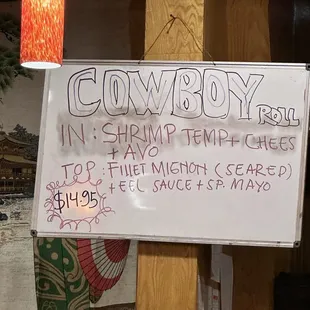 COWBOY ROLL
IN : SHRIMP TEMP + CHEES
+ AVO
TOP : FILLET MIGNON (SEARED)
+ EEL SAUCE + SP. MAYO
$14.95